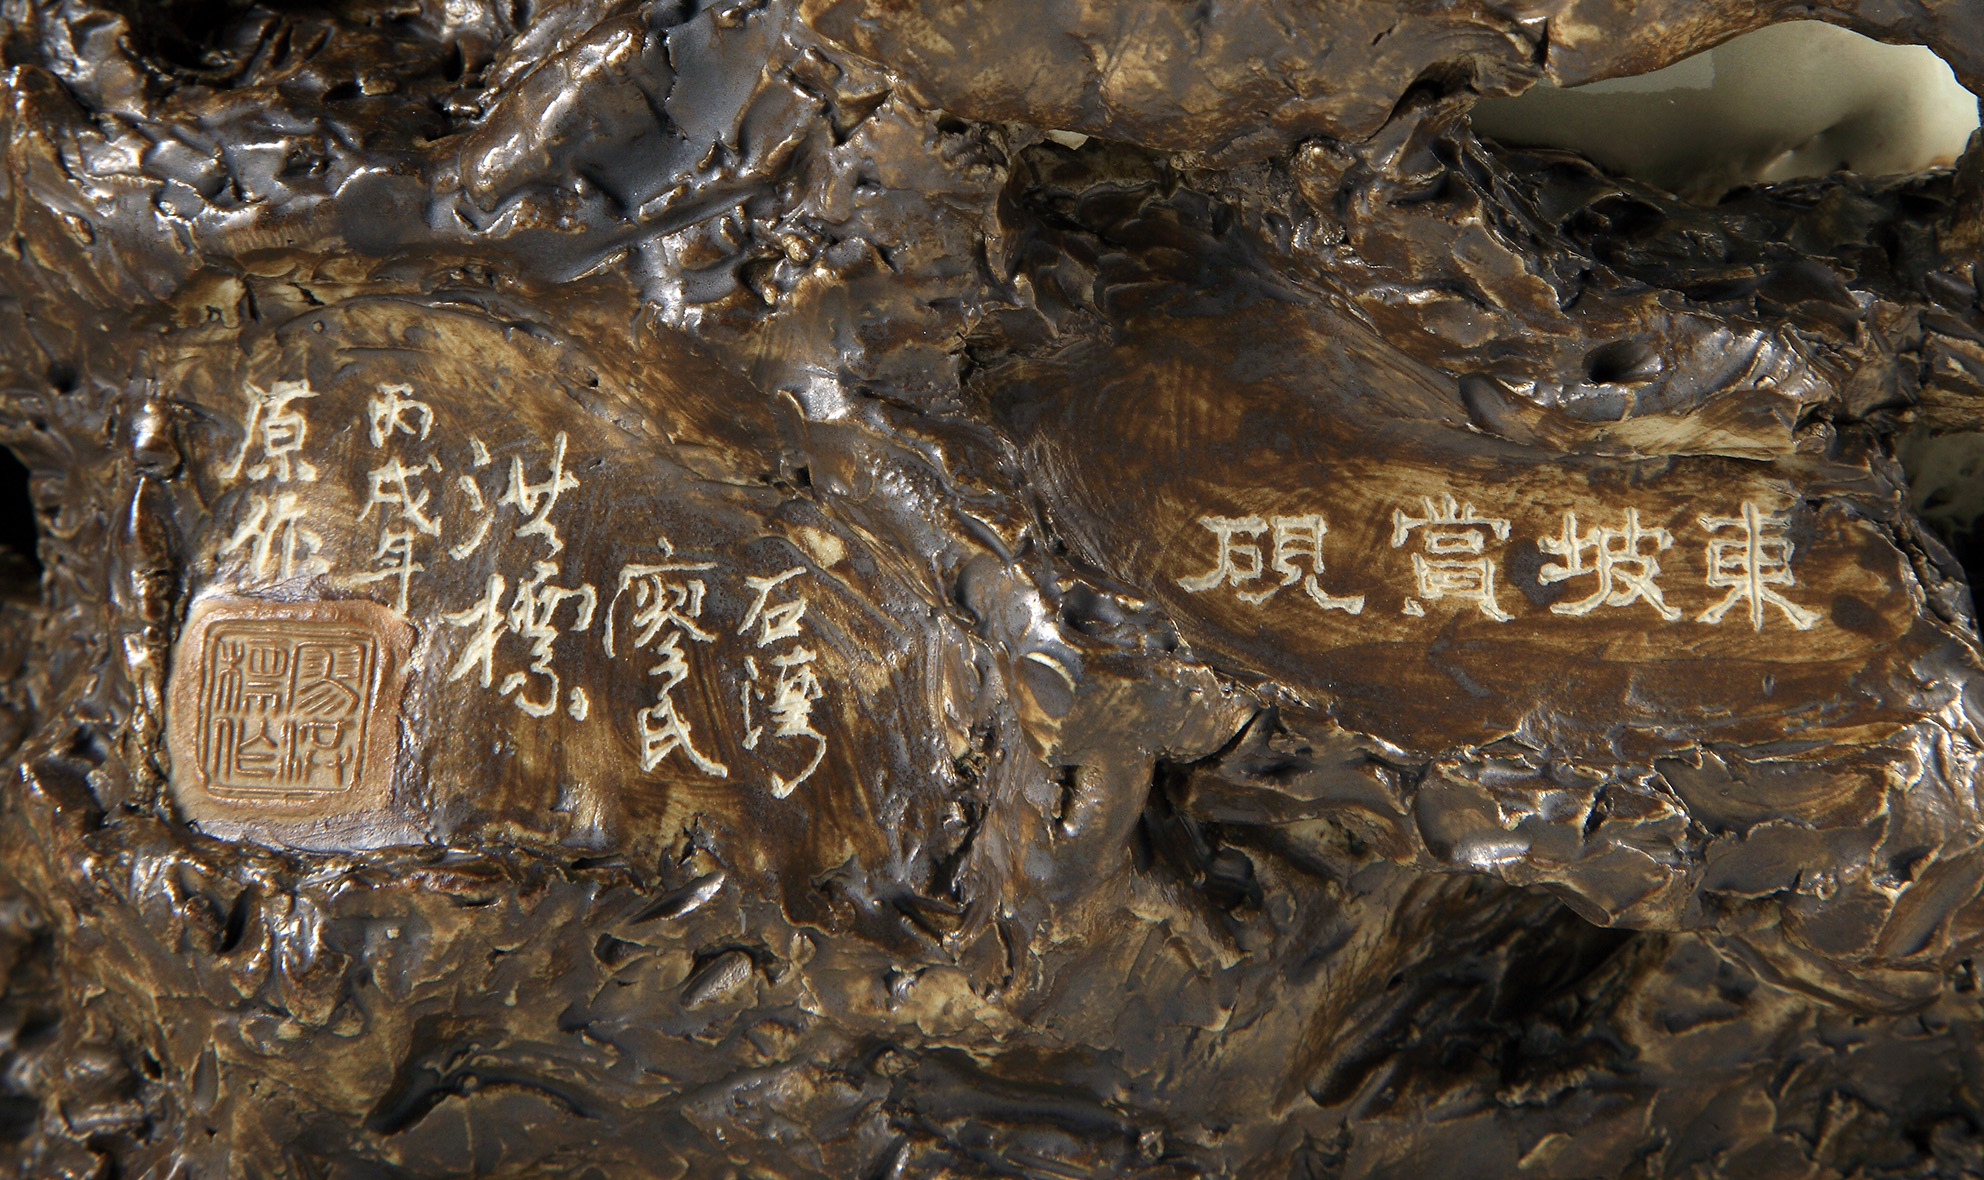 東坡賞硯
石灣
廖氏
洪標
丙戌年
原作
廖洪
標作